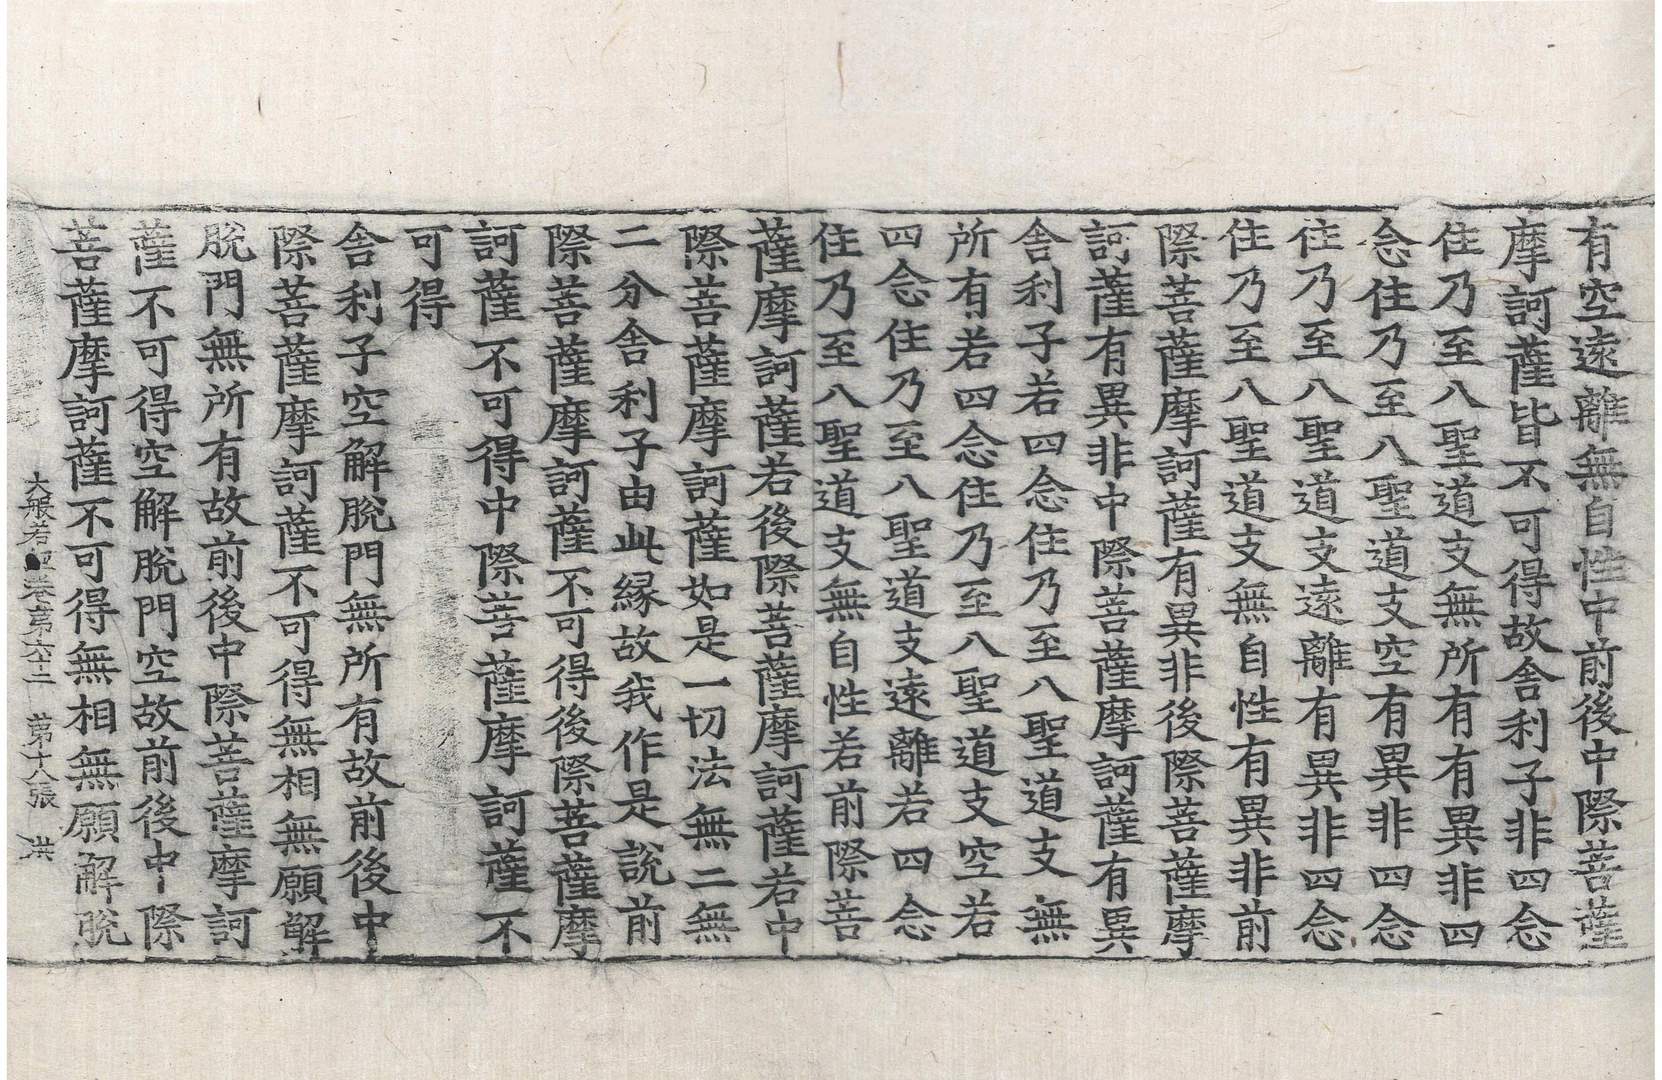 有空遠離無自性中前後中際菩薩
摩訶薩皆不可得故舍利子非四念
住乃至八聖道支無所有有異非四
念住乃至八聖道支空有異非四念
住乃至八聖道支遠離有異非四念
住乃至八聖道支無自性有異非前
際菩薩摩訶薩有異非後際菩薩摩
訶薩有異非中際菩薩摩訶薩有異
舍利子若四念住乃至八聖道支無
所有若四念住乃至八聖道支空若
四念住乃至八聖道支遠離若四念
住乃至八聖道支無自性若前際菩
薩摩訶薩若後際菩薩摩訶薩若中
際菩薩摩訶薩如是一切法無二無
二分舍利子由此緣故我作是說前
際菩薩摩訶薩不可得後際菩薩摩
訶薩不可得中際菩薩摩訶薩不
可得
舍利子空解脫門無所有故前後中
際菩薩摩訶薩不可得無相無願解
脫門無所有故前後中際菩薩摩訶
薩不可得空解脫門空故前後中際
菩薩摩訶薩不可得無相無願解脫
大般若經卷第六十二 第十八張 洪